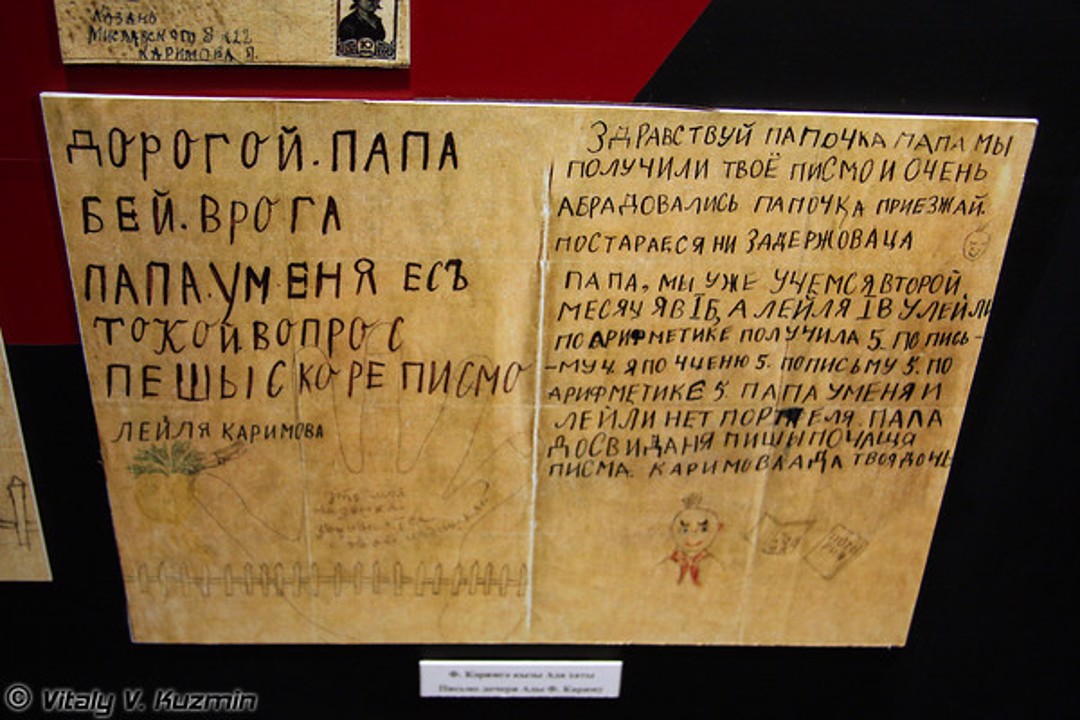 КАЗАНЬ
МИСЛАВСКОГО 8 К22
КАРИМОВА Л.
ДОРОГОЙ. ПАПА
БЕЙ. ВРОГА
ПАПА. УМЕНЯ ЕСЪ
ТОКОЙ ВОПРОС
ПЕШЫ СКОРЕ ПИСМО
ЛЕЙЛЯ КАРИМОВА
Это моя
ЗДРАВСТВУЙ ПАПОЧКА ПАПА МЫ
ПОЛУЧИЛИ ТВОЁ ПИСМО И ОЧЕНЬ
АБРАДОВАЛИСЬ ПАПОЧКА ПРИЕЗЖАЙ.
ПОСТАРАЕСЯ НИ ЗАДЕРЖОВАЦА
ПАПА, МЫ УЖЕ УЧЕМСЯ ВТОРОЙ
МЕСЯЧ Я В IБ, А ЛЕЙЛЯ IВ У ЛЕЙЛИ
ПО АРИФМЕТИКЕ ПОЛУЧИЛА 5. ПО ПИСЬ-
-МУ 4. Я ПО ЧЦЕНЮ 5. ПО ПИСЬМУ 5. ПО
АРИФМЕТИКЕ 5. ПАПА УМЕНЯ И
ЛЕЙЛИ НЕТ ПОРТФЕЛЯ. ПАПА
ДОСВИДАНЯ ПИШЫ ПОЧАЩА
ПИСМА. КАРИМОВА АДА ТВОЯ ДОЧЬ
Ф. Кәримгә кызы Ада хаты
Письмо дочери Ады Ф. Кариму
© Vitaly V. Kuzmin